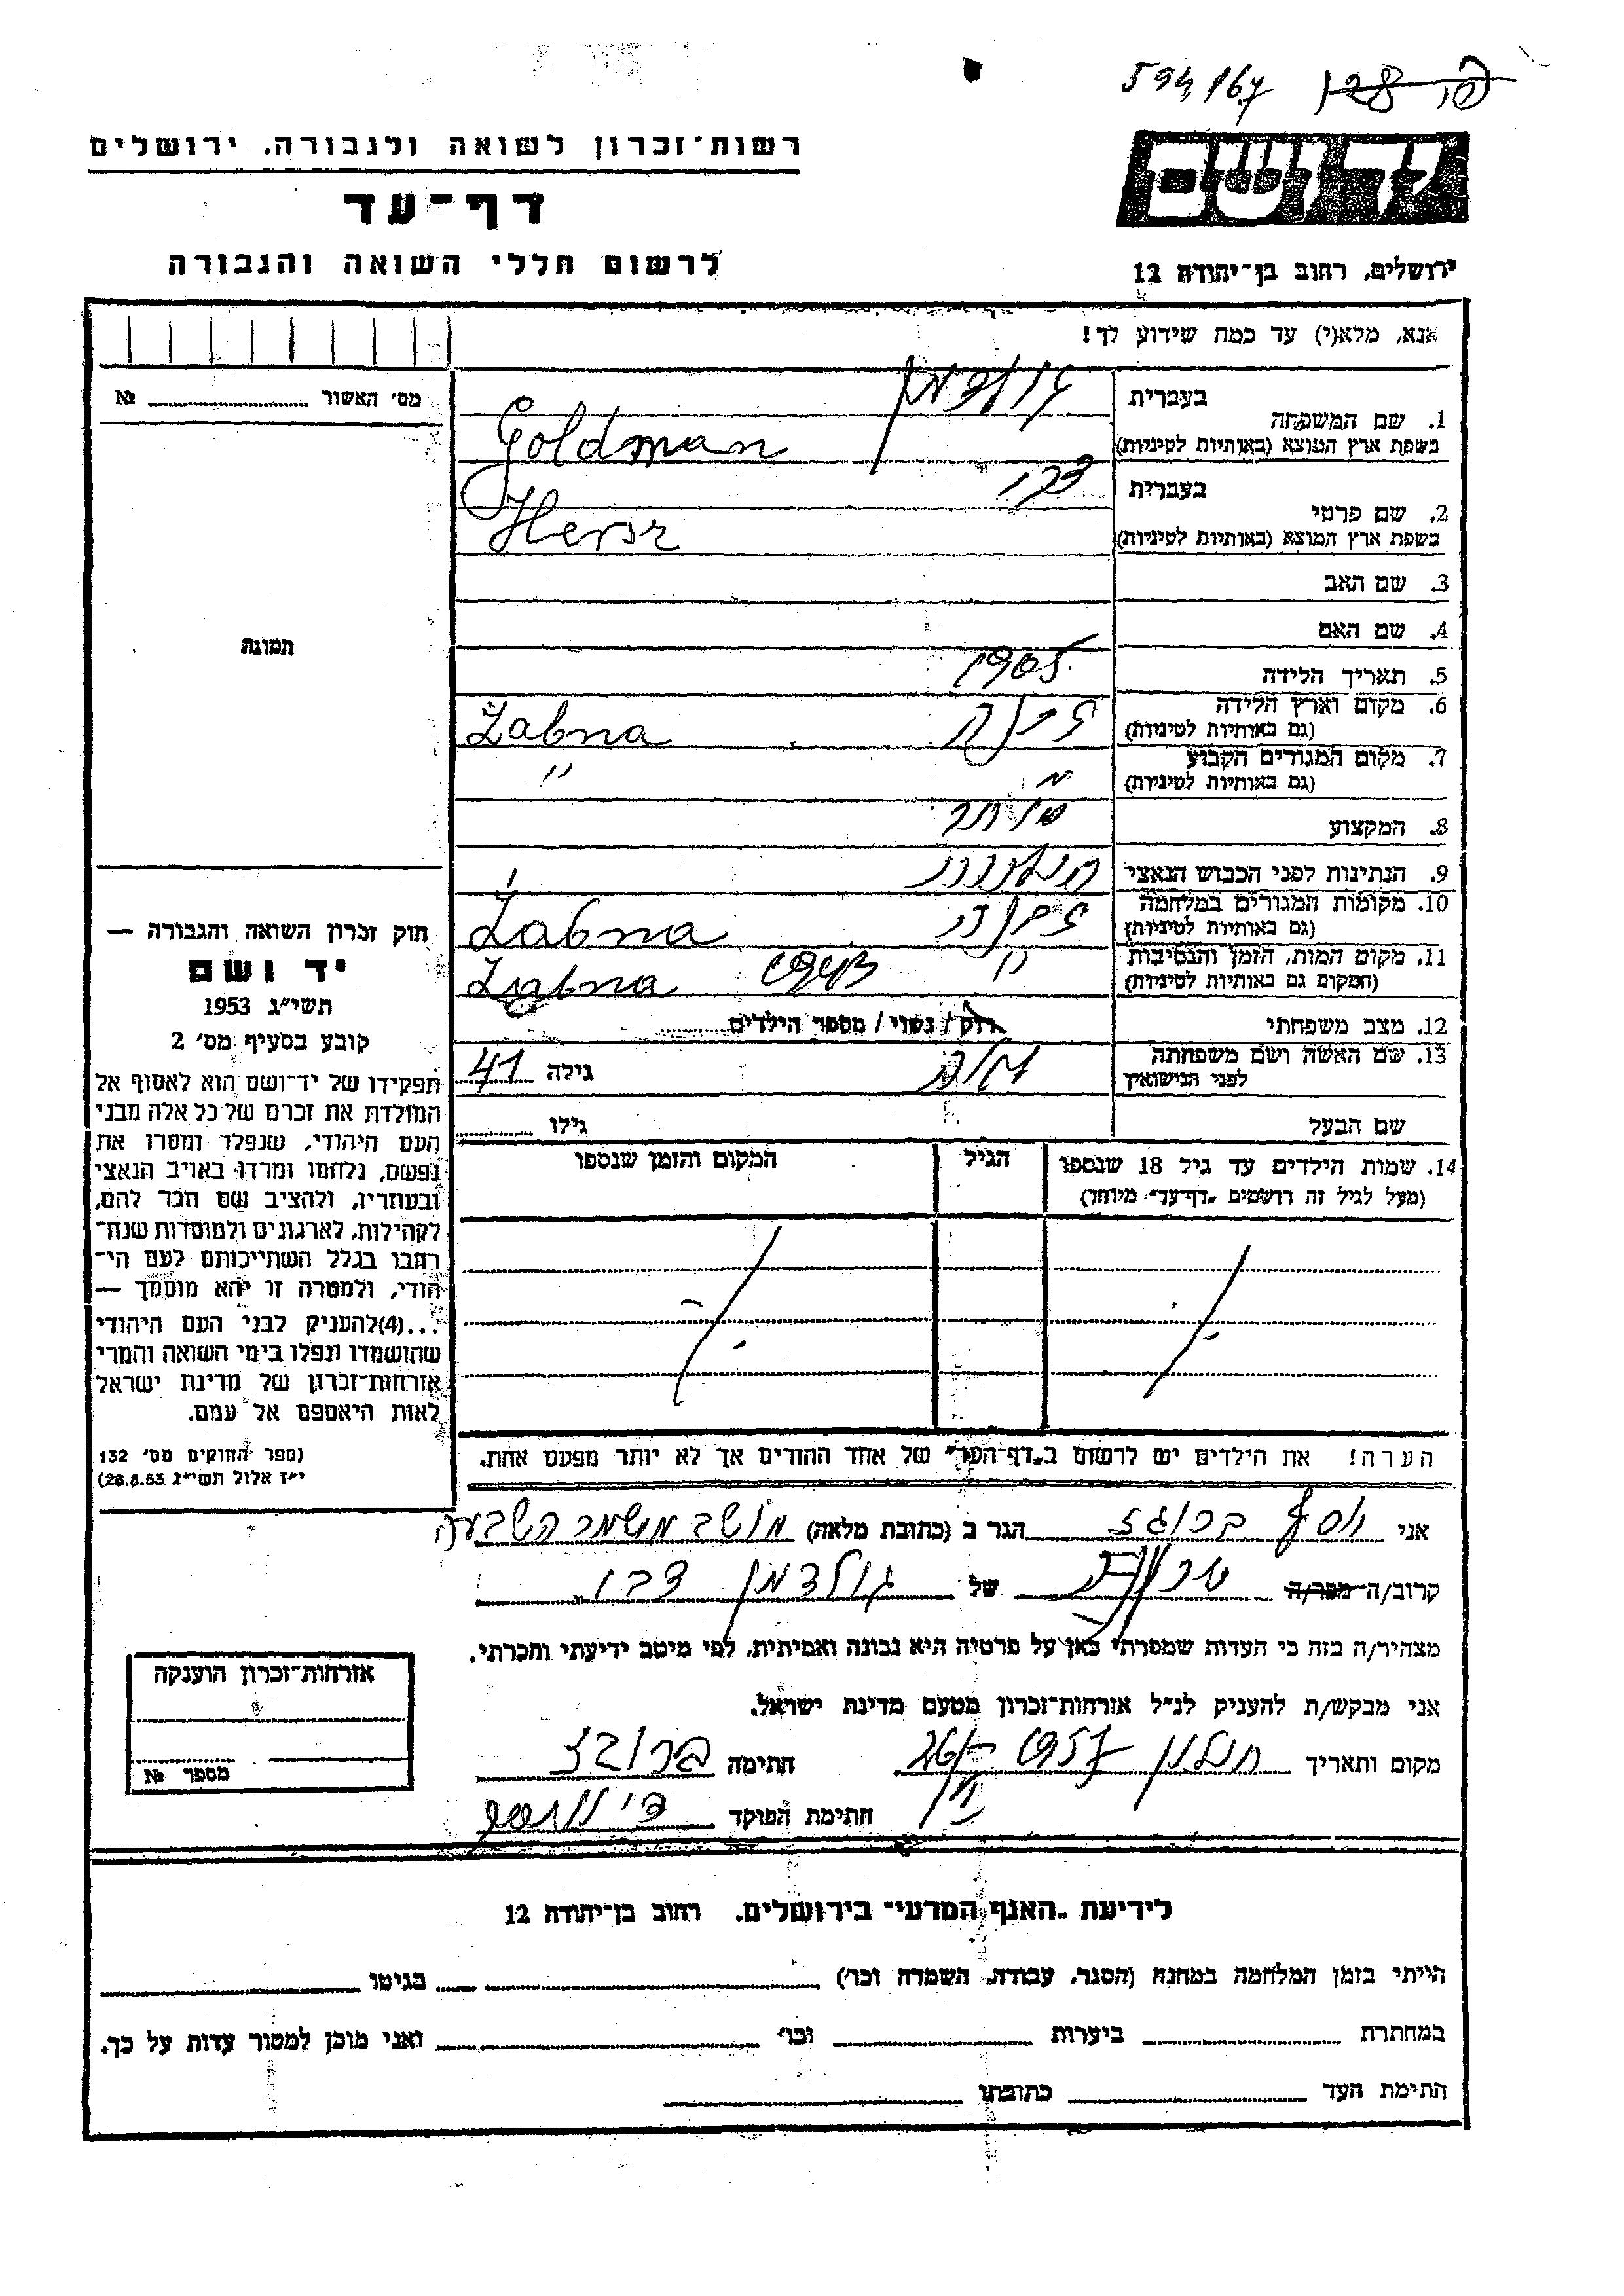 594167 פו 128
רשות־זכרון לשואה ולגבורה, ירושלים
דף־עד
לרשום חללי השואה והגבורה
ידושם
ירושלים, רחוב בן־יהודה 12
אנא, מלא(י) עד כמה שידוע לך!
מס׳ האשור № 
1. שם המשפחה
בעברית גולדמן
בשפת ארץ המוצא (באותיות לטיניות) Goldman
2. שם פרטי
בעברית צבי
בשפת ארץ המוצא (באותיות לטיניות) Hersz
3. שם האב
4. שם האם
5. תאריך הלידה 1905
6. מקום וארץ הלידה
(גם באותיות לטיניות) Żabna
7. מקום המגורים הקבוע
(גם באותיות לטיניות) " "
8. המקצוע סוחר
9. הנתינות לפני הכבוש הנאצי
10. מקומות המגורים במלחמה
(גם באותיות לטיניות) Żabna
11. מקום המות, הזמן והנסיבות
(המקום גם באותיות לטיניות) " Żabna
12. מצב משפחתי רוק / נשוי / מספר הילדים
13. שם האשה ושם משפחתה
לפני הנישואין גילה 41
שם הבעל גילו
14. שמות הילדים עד גיל 18 שנספו
(מעל לגיל זה רושמים "דף־עד" מיוחד)
הגיל
המקום והזמן שנספו
הערה! את הילדים יש לרשום ב"דף־העד" של אחד ההורים אך לא יותר מפעם אחת.
תמונה
חוק זכרון השואה והגבורה —
יד ושם
תשי״ג 1953
קובע בסעיף מס׳ 2
תפקידו של יד־ושם הוא לאסוף אל
המולדת את זכרם של כל אלה מבני
העם היהודי, שנפלו ומסרו את
נפשם, נלחמו ומרדו באויב הנאצי
ובעוזריו, ולהציב שם וזכר להם,
לקהילות, לארגונים ולמוסדות שנח־
רבו בגלל השתייכותם לעם הי־
הודי, ולמטרה זו יהא מוסמך —
...(4) להעניק לבני העם היהודי
שהושמדו ונפלו בימי השואה והמרי
אזרחות־זכרון של מדינת ישראל
לאות היאספם אל עמם.
(ספר החוקים מס׳ 132
י״ז אלול תשי״ג 28.8.53)
אני יוסף הגר ב (כתובת מלאה) מושב משמר השבעה
קרוב/ה מכר/ה של גולדמן צבי
מצהיר/ה בזה כי העדות שמסרתי כאן על פרטיה היא נכונה ואמיתית, לפי מיטב ידיעתי והכרתי.
אני מבקש/ת להעניק לנ״ל אזרחות־זכרון מטעם מדינת ישראל.
מקום ותאריך חולון חתימה
חתימת הפוקד
אזרחות־זכרון הוענקה
מספר №
לידיעת "האגף המדעי" בירושלים, רחוב בן־יהודה 12
הייתי בזמן המלחמה במחנה (הסגר, עבודה, השמדה וכו׳) בגיטו
במחתרת ביערות וכו׳ ואני מוכן למסור עדות על כך.
חתימת העד כתובתו